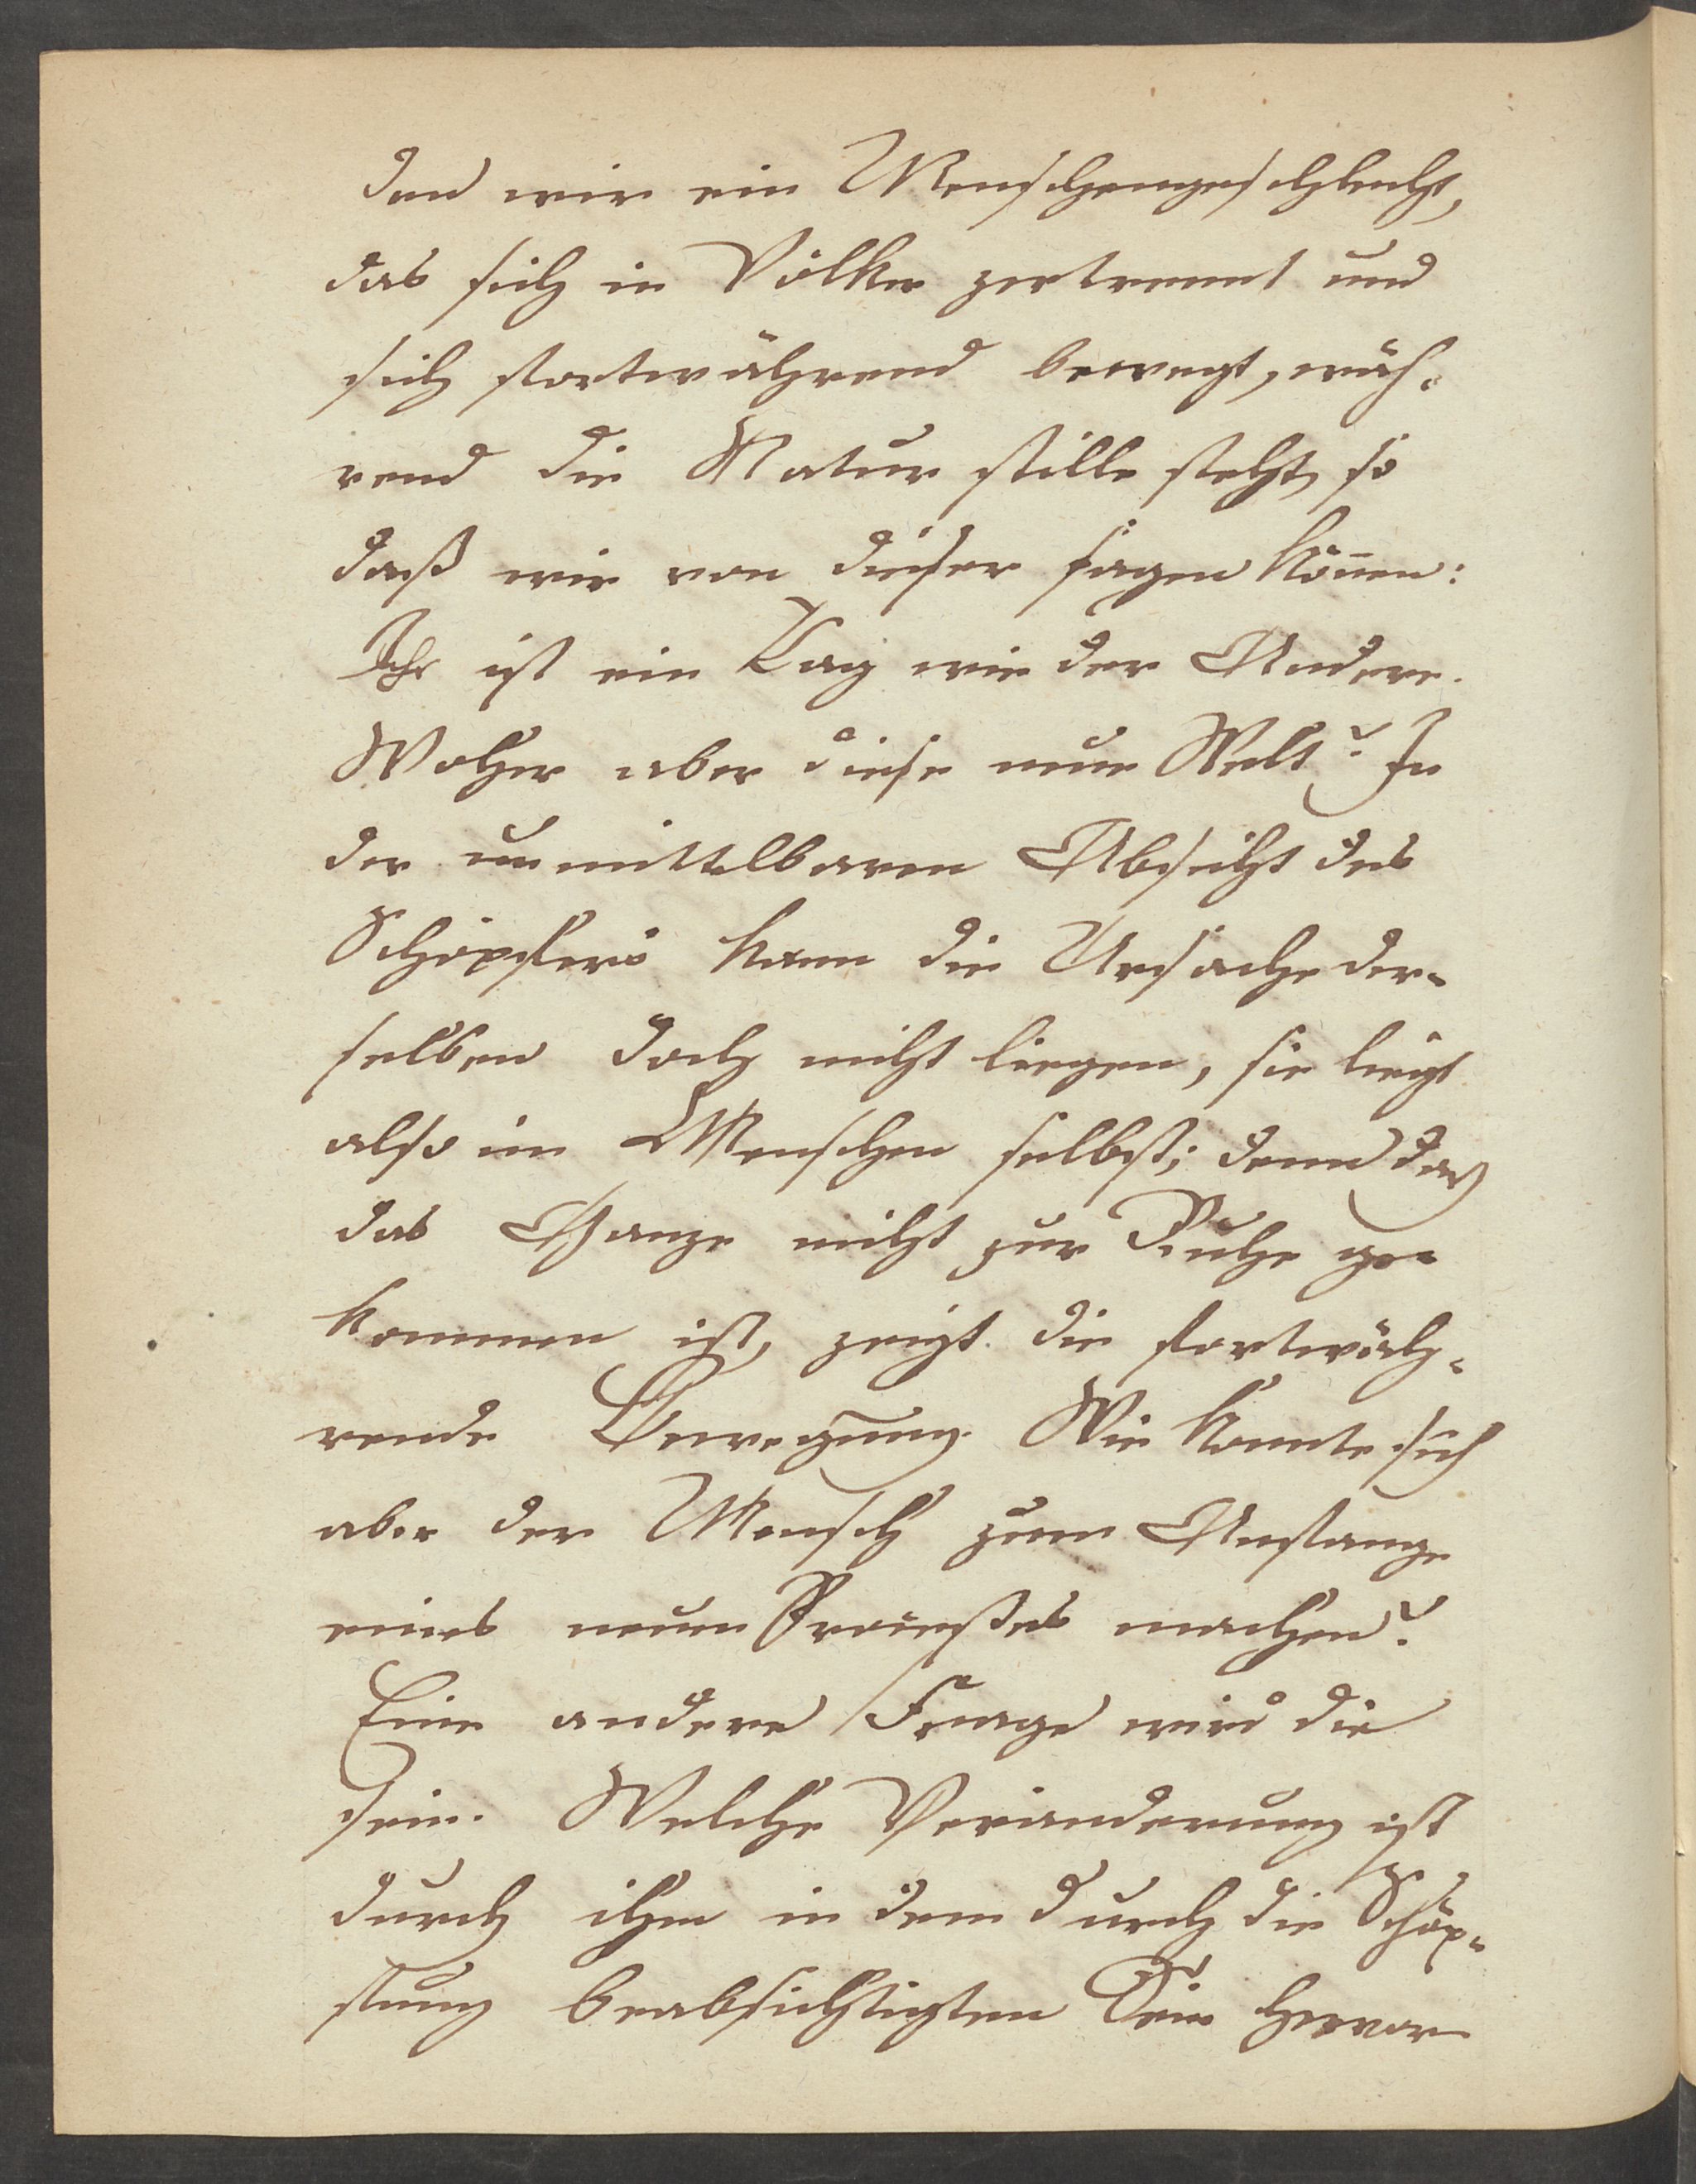 den wir ein Menschengeschlecht,
das sich in Völker zertrennt und
sich fortwährend bewegt, wäh-
rend die Natur stille steht, so
daß wir von dieser sagen kön̄en:
Ihr ist ein Tag wie der Andere.
Woher aber diese neue Welt? In
der unmittelbaren Absicht des
Schöpfers kann die Ursache der-
selben doch nicht liegen, sie liegt
also im Menschen selbst; denn daß
das Ganze nicht zur Ruhe ge-
kommen ist, zeigt die fortwäh-
rende Bewegung. Wie konnte sich
aber der Mensch zum Anfange
eines neuen Prozeßes machen?
Eine andere Frage wird die
sein. Welche Veränderung ist
durch ihn in dem durch die Schöp-
fung beabsichtigten Sein hervor